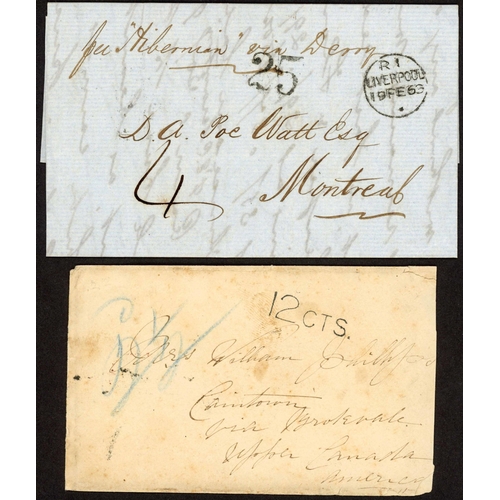 per "Hibernian" via Derry
25
R1
LIVERPOOL
19 FE 63
D. A. Poe Watt Esq
4
Montreal
12 CTS.
William
Caintown
via Brokvale
Upper Canada
America